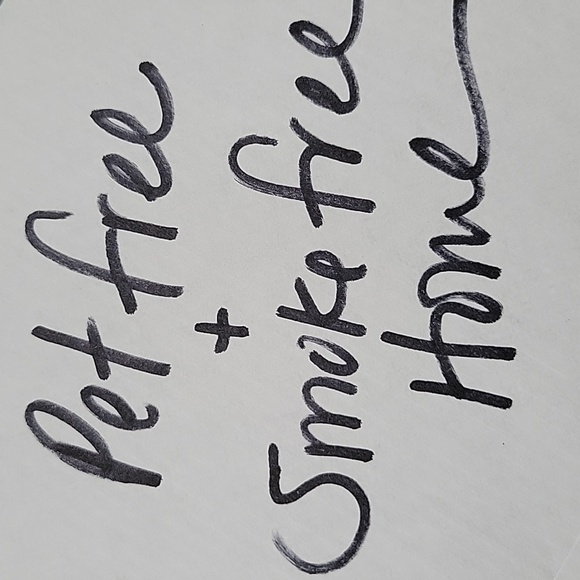 Pet free
+
Smoke free
Home